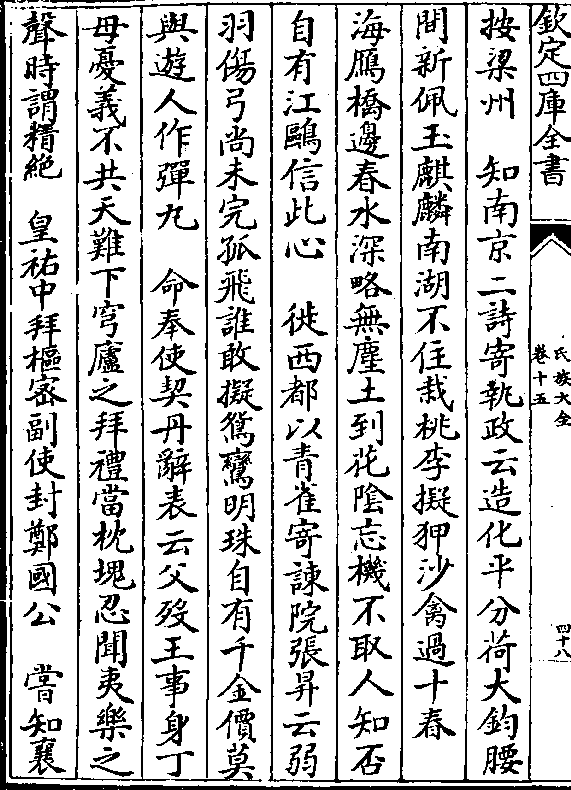 欽定四庫全書
氏族大全
卷十五
四十八
按梁州　知南京二詩寄執政云造化平分荷大鈞腰
間新佩玉麒麟南湖不住栽桃李擬狎沙禽過十春
海鴈橋邊春水深略無塵土到花隂忘機不取人知否
自有江鷗信此心　徙西都以青雀寄諫院張昇云弱
羽傷弓尚未完孤飛誰敢擬鴛鸞明珠自有千金價莫
與遊人作彈丸　命奉使契丹辭表云父殁王事身丁
母憂義不共天難下穹廬之拜禮當枕塊忍聞夷樂之
聲時謂精絶　皇祐中拜樞密副使封鄭國公　嘗知襄